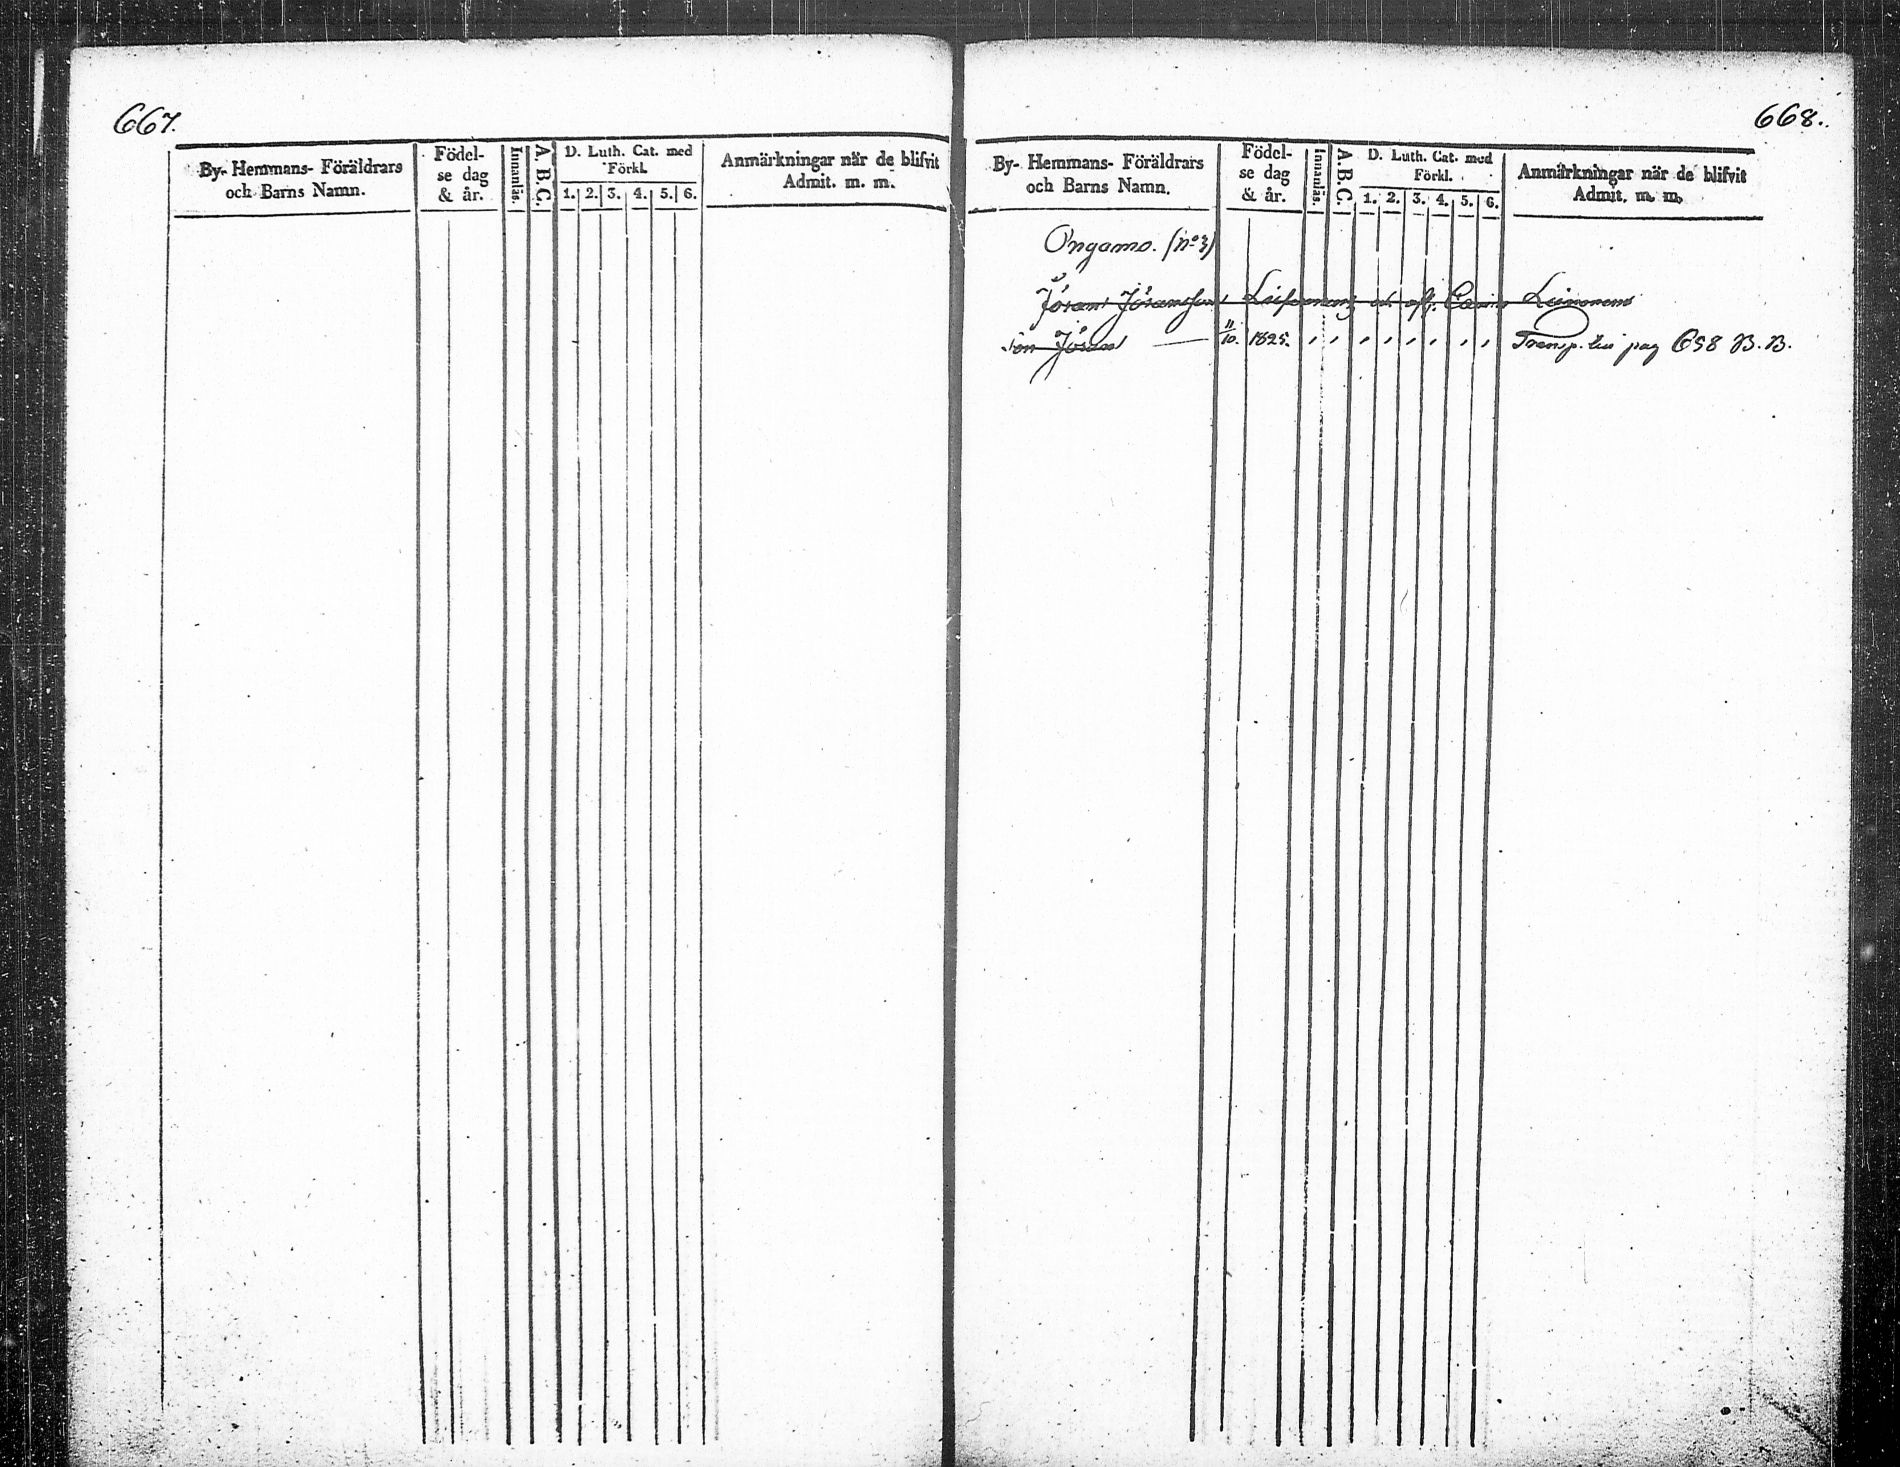 667.
By- Hemmans- Föräldrars
och Barns Namn.
Födel-
se dag
& år.
Innanläs.
A. B. C.
D. Luth. Cat. med
Förkl.
1. 2. 3. 4. 5. 6.
Anmärkningar när de blifvit
Admit. m. m.
668.
By- Hemmans- Föräldrars
och Barns Namn.
Födel-
se dag
& år.
Innanläs.
A. B. C.
D. Luth. Cat. med
Förkl.
1. 2. 3. 4. 5. 6.
Anmärkningar när de blifvit
Admit. m. m.
Ongamo. (No 3)
Jöran Jöransson
Son Jöran 11/10. 1825. Transp. till pag 658 B. B.